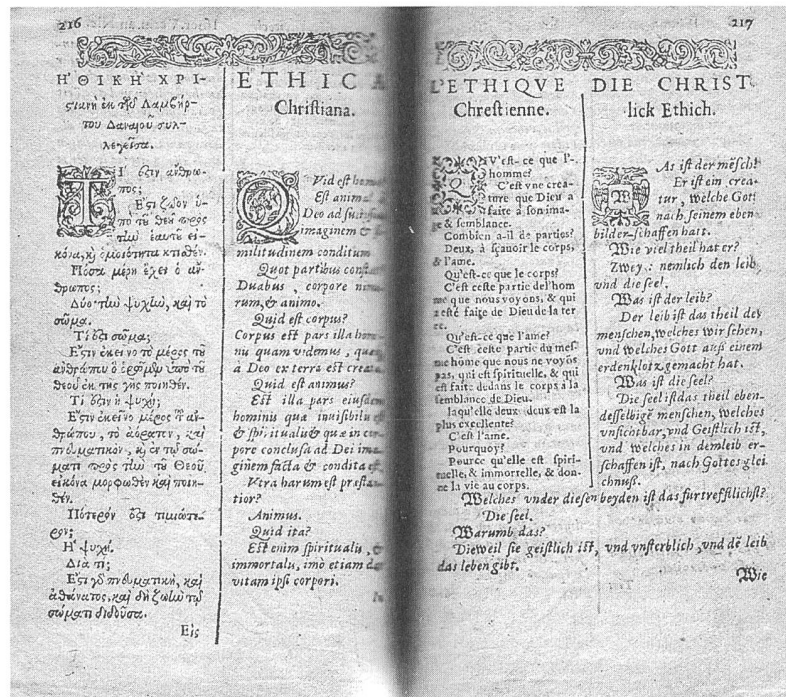 216
Η᾿ΘΙΚΗ ΧΡΙ-
ϛιανὴ ἐκ τῶν Λαμβήρ-
του Δαναίου συλ-
λεγεῖσα.
ΤΙ᾿ ὅζιν ἄνθρω-
πος;
Ε᾿ϛι ζῶον ὑ-
πὸ τοῦ θεοῦ πρὸς
τὴν ἑαυτοῦ εἰ-
κόνα, κὶ ὁμοιότητα κτισθέν.
Πόσα μέρη ἔχει ὁ ἄν-
θρωπος;
Δύο· τὴν ψυχὴν, καὶ τὸ
σῶμα.
Τί ὅζι σῶμα;
Ε᾿ϛιν ἐκεῖνο τὸ μέρος τοῦ
ἀνθρώπου ὃ ὑπὸ τοῦ
θεοῦ ἐκ τῆς γῆς ποιηθέν.
Τί ὅζιν ἡ ψυχή;
Ε᾿ϛιν ἐκεῖνο μέρος τοῦ ἀν-
θρώπου, τὸ ἀόρατον, καὶ
πνευματικὸν, κὶ ἐν τῷ σώ-
ματι πρὸς τὴν τοῦ Θεοῦ
εἰκόνα μορφωθὲν καὶ ποιη-
θέν.
Πότερόν ὅζι τιμιώτε-
ρον;
Η᾿ ψυχή.
Διὰ τί;
Ε᾿ϛι γὸ πνευματικὴ, καὶ
ἀθάνατος, καὶ δὴ ζωὴν τῷ
σώματι διδοῦσα.
Εἰς
ETHICA
Chriſtiana.
QVid eſt
Eſt
Deo ad
imaginem &
militudinem conditum
Quot partibus
Duabus, corpore
rum, & animo.
Quid eſt corpus?
Corpus eſt pars illa
nu quam videmus,
à Deo ex terra eſt
Quid eſt animus?
Eſt illa pars
hominis quæ
& ſpiritualis & quæ in
pore concluſa ad Dei
ginem facta & condita
Vtra harum eſt
tior?
Animus.
Quid ita?
Eſt enim ſpiritualis, &
immortalis, imò etiam
vitam ipſi corpori.
217
L'ETHIQVE
Chreſtienne.
QV'eſt-ce que l'-
homme?
C'eſt vne crea-
ture que Dieu a
faite à ſon ima-
ge & ſemblance.
Combien a-il de parties?
Deux, à ſçauoir le corps,
& l'ame.
Qu'eſt-ce que le corps?
C'eſt ceſte partie del'hom
me que nous voyons, & qui
a eſté faite de Dieu de la ter
re.
Qu'eſt-ce que l'ame?
C'eſt ceſte partie du meſ
me home que nous ne voyõs
pas, qui eſt ſpirituelle, & qui
eſt faite dedans le corps à la
ſemblance de Dieu.
laquelle deux deux eſt la
plus excellente?
C'eſt l'ame.
Pourquoy?
Pource qu'elle eſt ſpiri-
tuelle, & immortelle, & don-
ne la vie au corps.
DIE CHRIST
lick Ethich.
WAs iſt der mẽſch?
Er iſt ein crea-
tur, welche Gott
nach ſeinem eben
bilder-ſchaffen hatt.
Wie viel theil hat er?
Zwey: nemlich den leib
vnd die ſeel.
Was iſt der leib?
Der leib iſt das theil des
menſchen, welches wir ſehen,
vnd welches Gott auß einem
erdenklotz gemacht hat.
Was iſt die ſeel?
Die ſeel iſt das theil eben-
deſſelbigẽ menſchen, welches
vnſichtbar, vnd Geiſtlich iſt,
vnd welches in demleib er-
ſchaffen iſt, nach Gottes glei
chnuß.
Welches vnder dieſen beyden iſt das furtrefflichſt?
Die ſeel.
Warumb das?
Dieweil ſie geiſtlich iſt, vnd vnſterblich, vnd dẽ leib
das leben gibt.
Wie